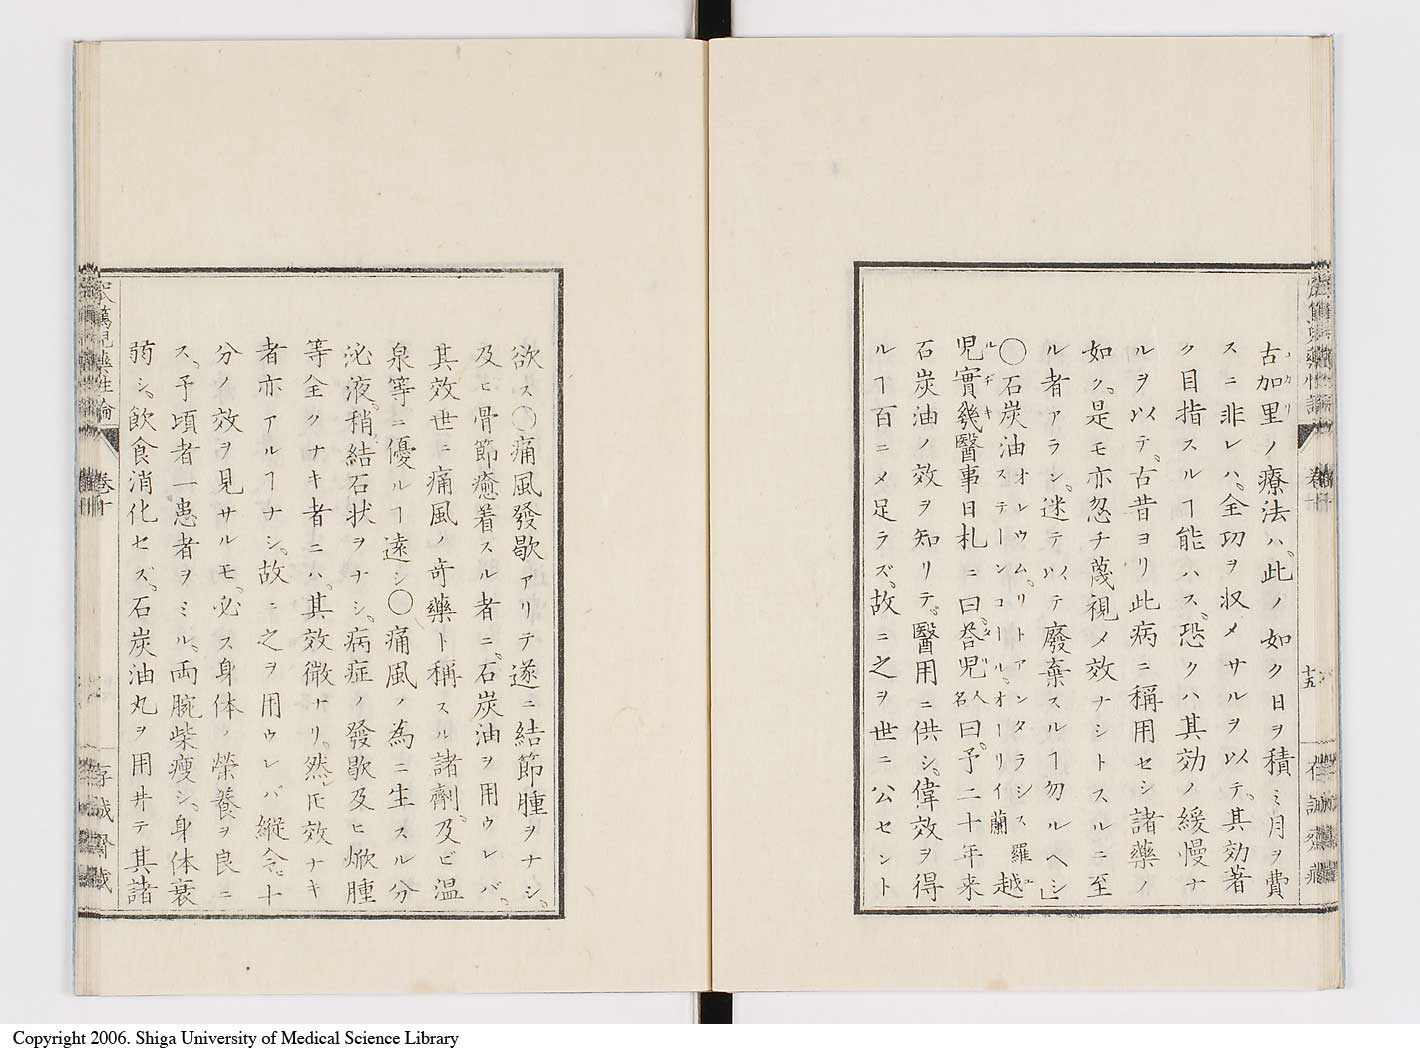 古加里ノ療法ハ、此ノ如ク日ヲ積ミ月ヲ費
スニ非レハ、全功ヲ収メサルヲ以テ、其効著
ク目指スルヿ能ハス、恐クハ其効ノ緩慢ナ
ルヲ以テ、古昔ヨリ此病ニ稱用セシ諸藥ノ
如ク、是モ亦忽チ蔑視メ效ナシトスルニ至
ル者アラン、迷テ以テ廢棄スルヿ勿ルヘシ」
◯石炭油オレウム、リトアンタラシス羅
ステーンコールオーリイ蘭越
児實幾醫事日札ニ曰、呑児人名曰、予二十年来
石炭油ノ效ヲ知リテ、醫用ニ供シ、偉效ヲ得
ルヿ百ニメ足ラズ、故ニ之ヲ世ニ公セント
十五
欲ス◯痛風發歇アリテ遂ニ結節腫ヲナシ、
及ヒ骨節癒着スル者ニ、石炭油ヲ用ウレバ、
其效世ニ痛風ノ奇藥ト稱スル諸劑、及ビ温
泉等ニ優ルヿ遠シ◯痛風ノ為ニ生スル分
泌液、稍結石状ヲナシ、病症ノ發歇及ヒ焮腫
等全クナキ者ニハ、其效微ナリ、然𪜈效ナキ
者亦アルヿナシ、故ニ之ヲ用ウレバ縦令十
分ノ效ヲ見サルモ、必ス身体ノ榮養ヲ良ニ
ス、予頃者一患者ヲミル、両腕柴痩シ、身体衰
弱シ、飲食消化セズ、石炭油丸ヲ用井テ其諸
卷十
Copyright 2006. Shiga University of Medical Science Library